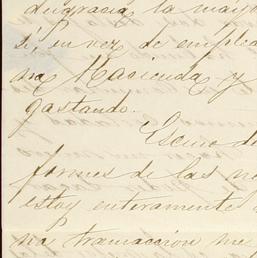 desgracia, la mayo
si, en vez de emplea
na Hacienda y
gastando.
Escuso de
formes de las no
estoy enteramente
na transaccion me